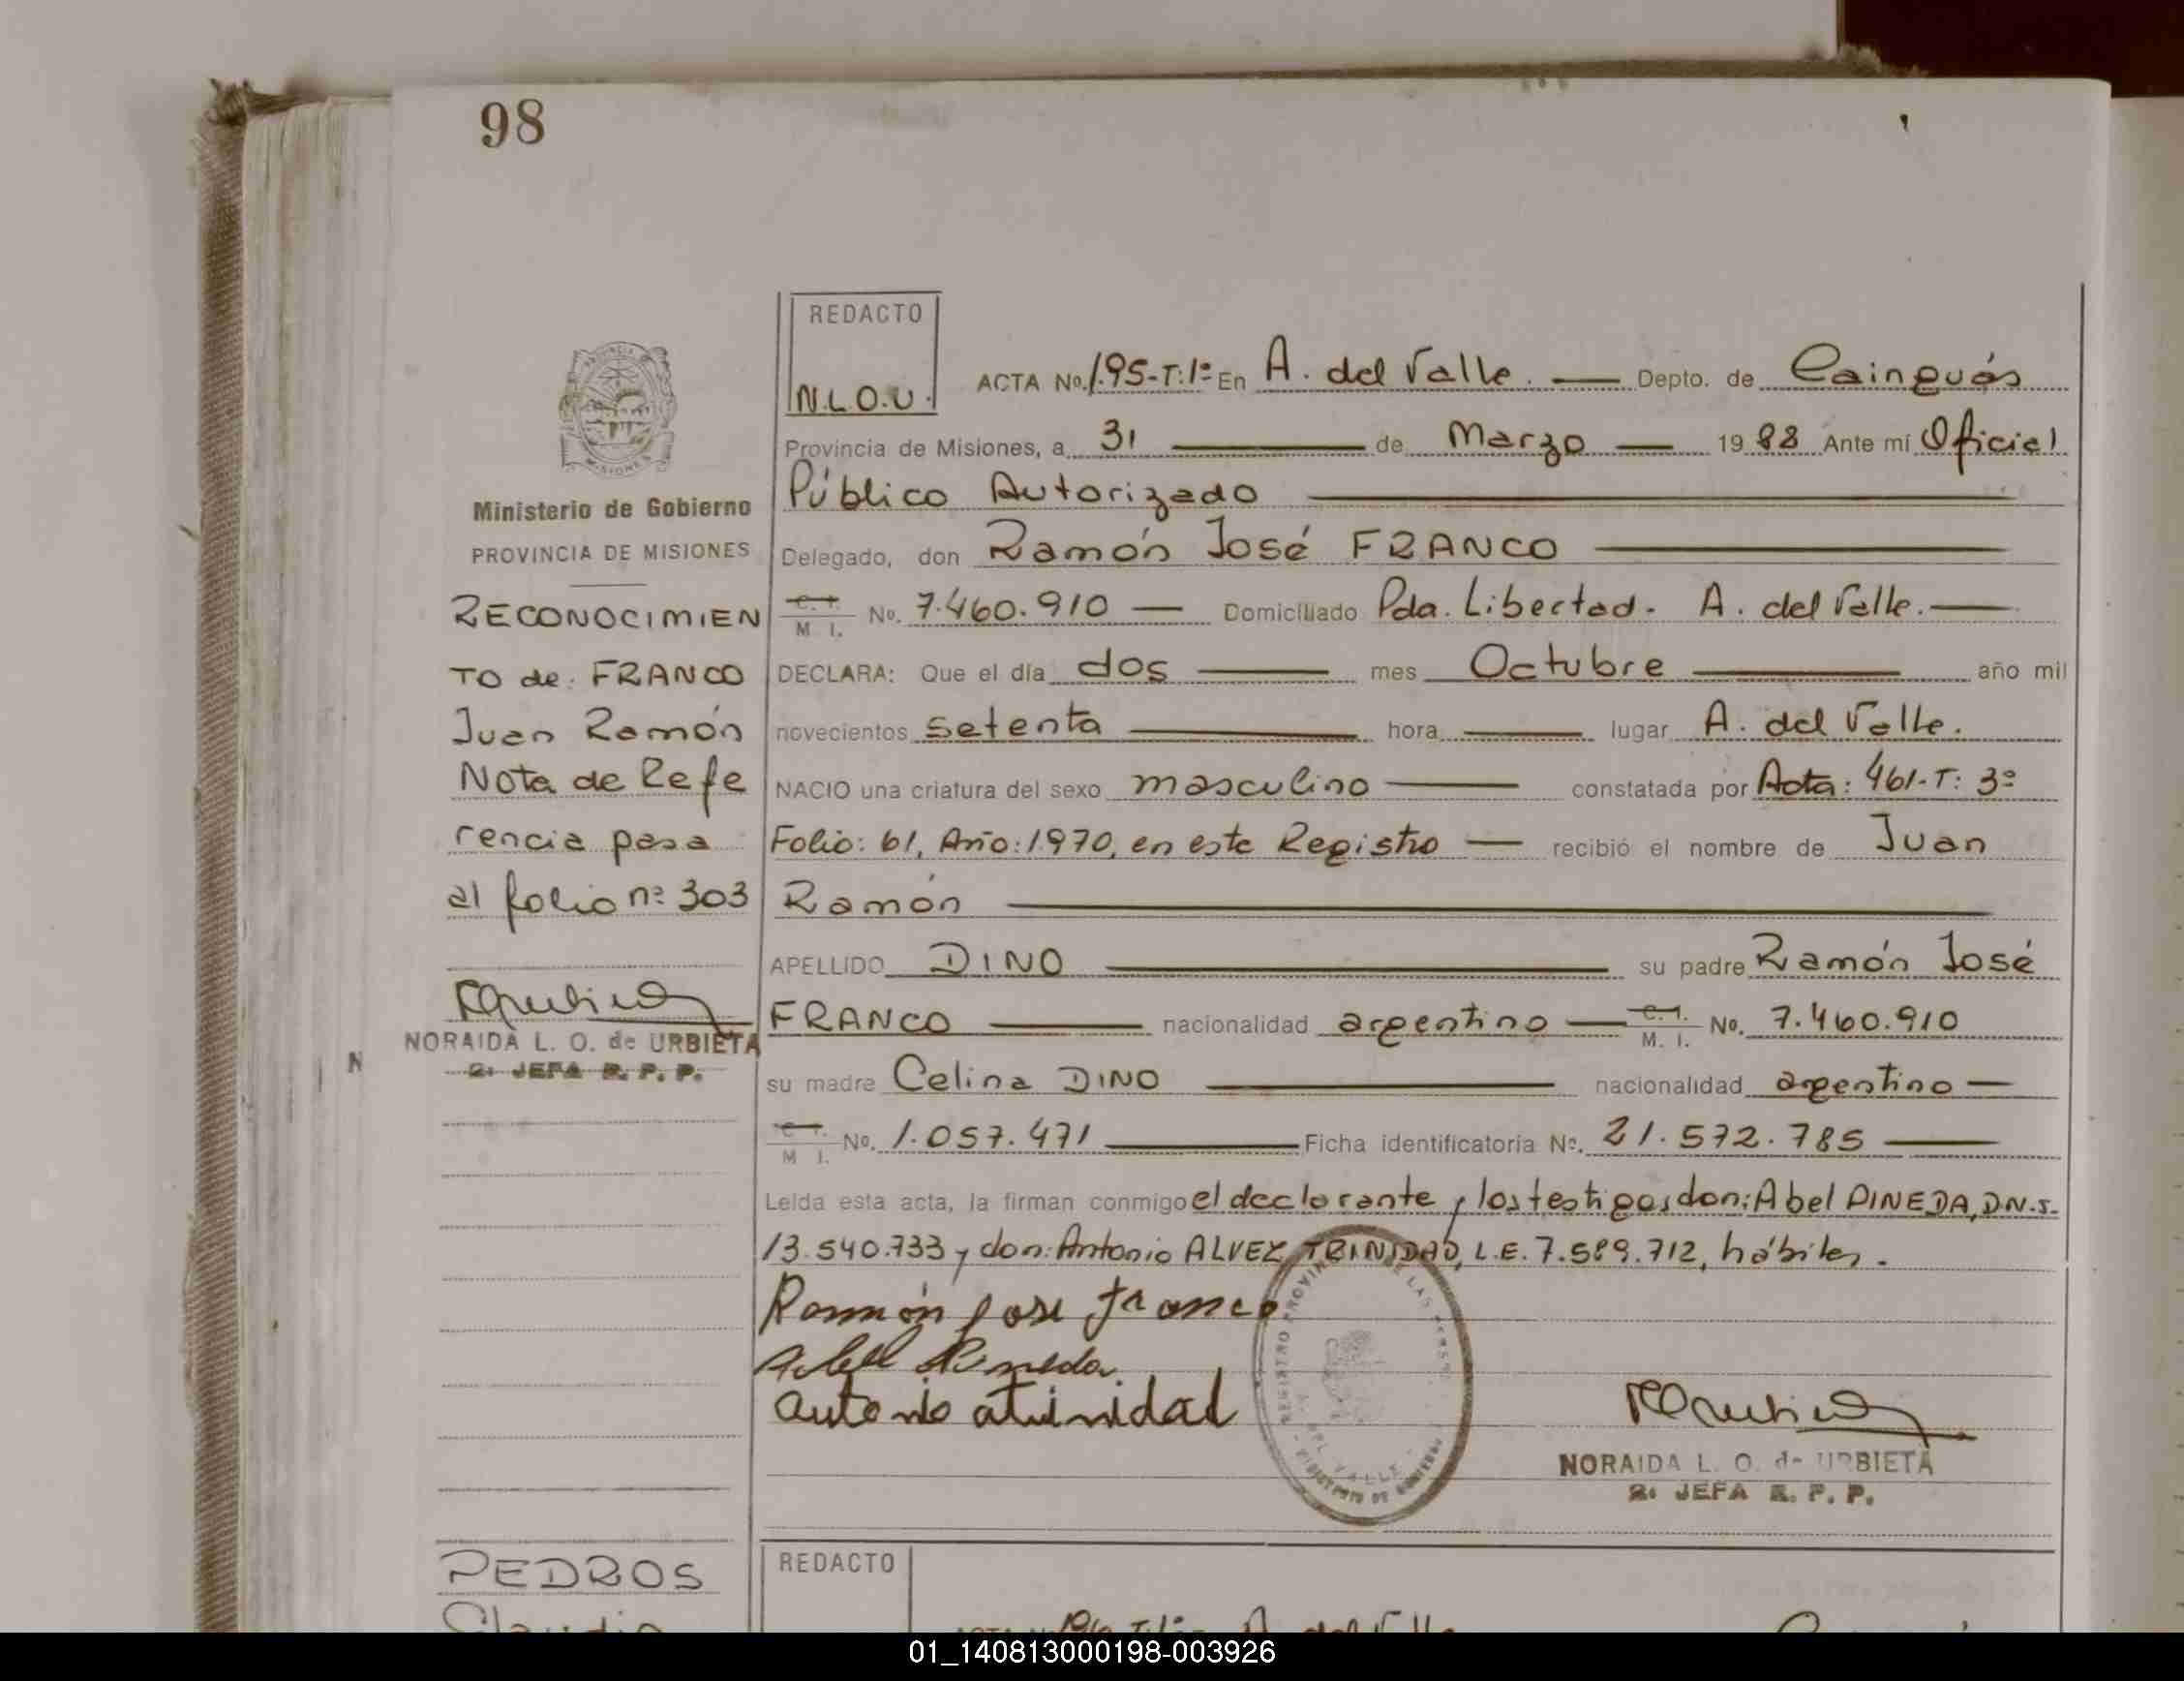 98
REDACTO
N.L.O.U.
ACTA No. 195-T:1º En A. del Valle. Depto. de Cainguás
Provincia de Misiones, a 31 de Marzo 1988 Ante mí Oficial
Público Autorizado
Delegado, don Ramón José FRANCO
C. I. M. I. No. 7.460.910 Domiciliado Pda. Libertad. A. del Valle.
DECLARA: Que el día dos mes Octubre año mil
novecientos setenta hora lugar A. del Valle.
NACIO una criatura del sexo masculino constatada por Acta: 461-T: 3º
Folio: 61, Año: 1970, en este Registro recibió el nombre de Juan
Ramón
APELLIDO DINO su padre Ramón José
FRANCO nacionalidad argentino C. I. M. I. No. 7.460.910
su madre Celina DINO nacionalidad argentino
C. I. M. I. No. 1.057.471 Ficha identificatoria No. 21.572.785
Leída esta acta, la firman conmigo el declarante y los testigos don: Abel PINEDA, D.N.I.
13.540.733 y don: Antonio ALVEZ TRINIDAD, L.E. 7.589.712, hábiles.
Ramón Jose franco
Abel Pineda
Antonio atrinidad
REGISTRO PROVINCIAL DE LAS
DEL VALLE
NORAIDA L. O. de URBIETA
2ª JEFA R. P. P.
PROVINCIA
MISIONES
Ministerio de Gobierno
PROVINCIA DE MISIONES
RECONOCIMIEN
TO de: FRANCO
Juan Ramón
Nota de Refe
rencia pasa
al folio nº 303
NORAIDA L. O. de URBIETA
2ª JEFA R. P. P.
N
PEDROS
Claudio
REDACTO
01_140813000198-003926